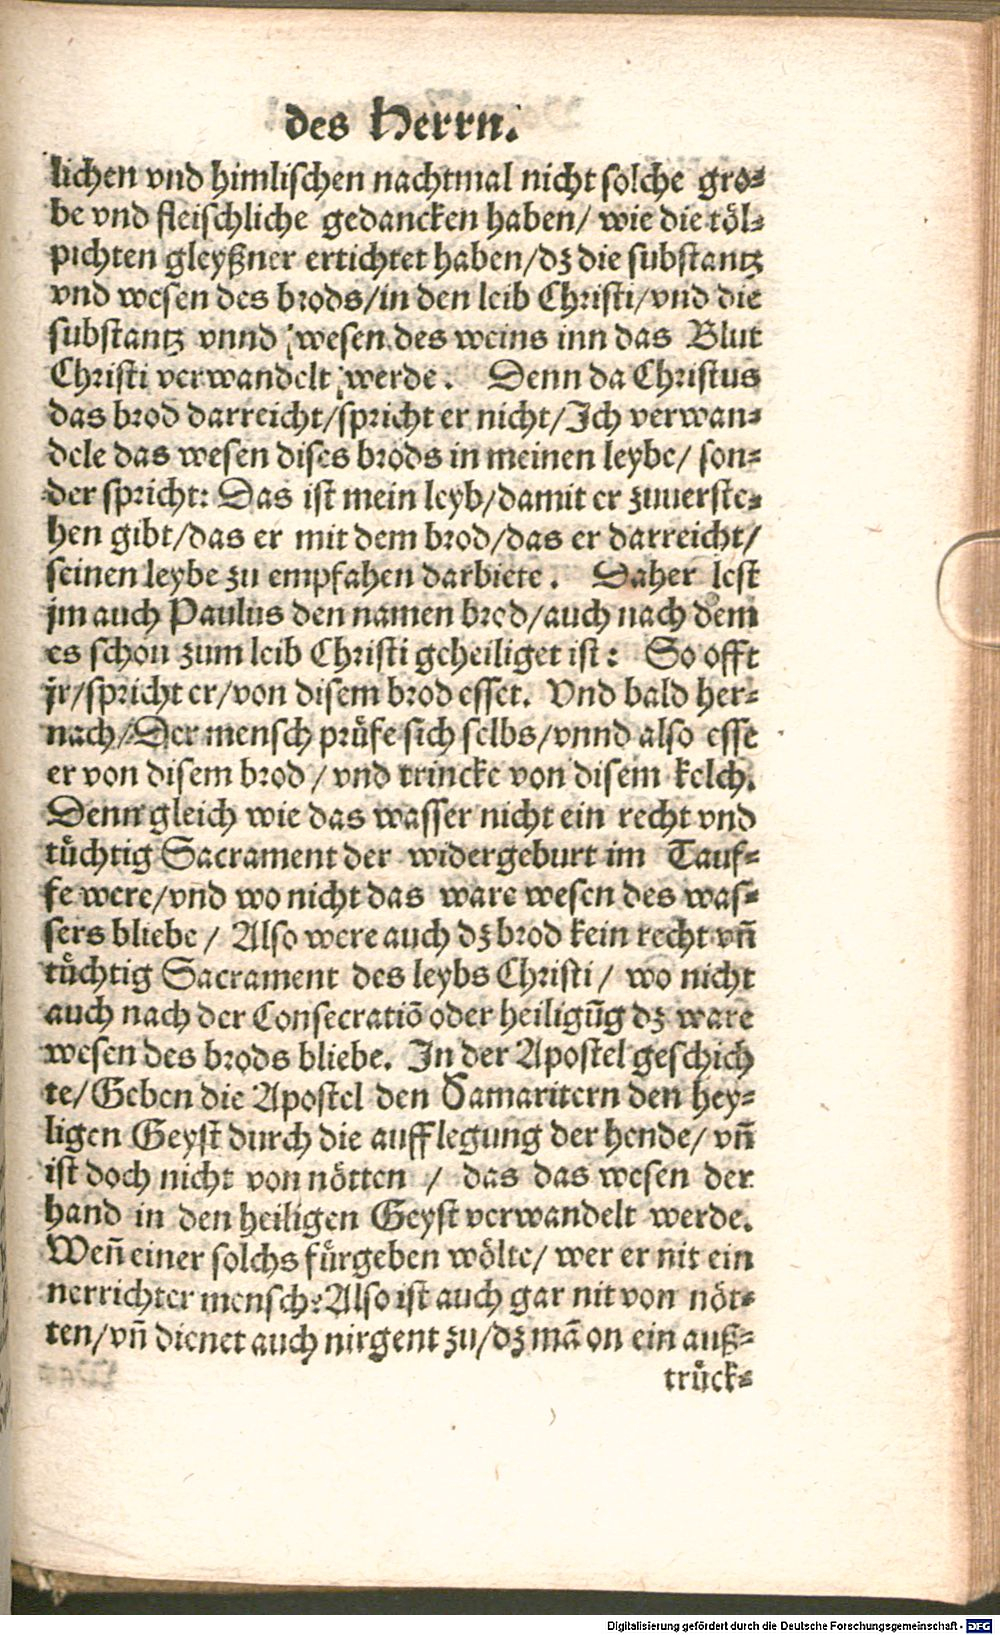 des Herrn.
lichen vnd himlischen nachtmal nicht solche gro⸗
be vnd fleischliche gedancken haben/ wie die töl⸗
pichten gleyßner ertichtet haben/dz die substantz
vnd wesen des brods/in den leib Christi/vnd die
substantz vnnd wesen des weins inn das Blut
Christi verwandelt werde. Denn da Christus
das brod darreicht/spricht er nicht/Ich verwan⸗
dele das wesen dises brods in meinen leybe/ son⸗
der spricht: Das ist mein leyb/damit er zuuerste⸗
hen gibt/das er mit dem brod/das er darreicht/
seinen leybe zu empfahen darbiete. Daher lest
jm auch Paulus den namen brod/auch nach dem
es schon zum leib Christi geheiliget ist: So offt
jr/spricht er/von disem brod esset. Vnd bald her⸗
nach/Der mensch prüfe sich selbs/vnnd also esse
er von disem brod/vnd trincke von disem kelch.
Denn gleich wie das wasser nicht ein recht vnd
tüchtig Sacrament der widergeburt im Tauf⸗
fe were/vnd wo nicht das ware wesen des was⸗
sers bliebe/ Also were auch dz brod kein recht vñ
tüchtig Sacrament des leybs Christi/ wo nicht
auch nach der Consecratiõ oder heiligũg dz ware
wesen des brods bliebe. In der Apostel geschich
te/Geben die Apostel den Samaritern den hey⸗
ligen Geyst durch die aufflegung der hende/ vñ
ist doch nicht von nötten / das das wesen der
hand in den heiligen Geyst verwandelt werde.
Weñ einer solchs fürgeben wölte/ wer er nit ein
nerrichter mensch? Also ist auch gar nit von nöt⸗
ten/vñ dienet auch nirgent zu/dz mã on ein auß⸗
trück⸗
Digitalisierung gefördert durch die Deutsche Forschungsgemeinschaft - DFG